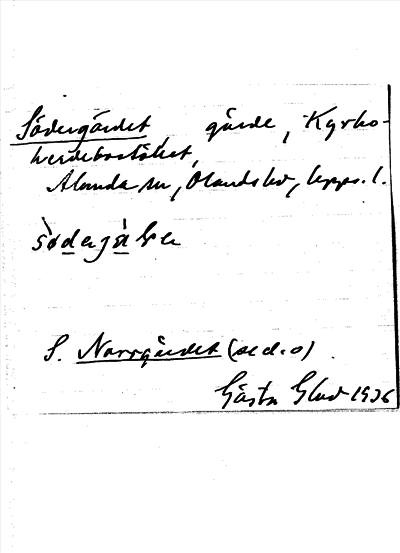 Södergärdet, gärde, Kyrko-
herdebostället,
Alunda sn, Olands hd, Upps. l.
S. Norrgärdet (se d.o)
Gösta Glad 1936